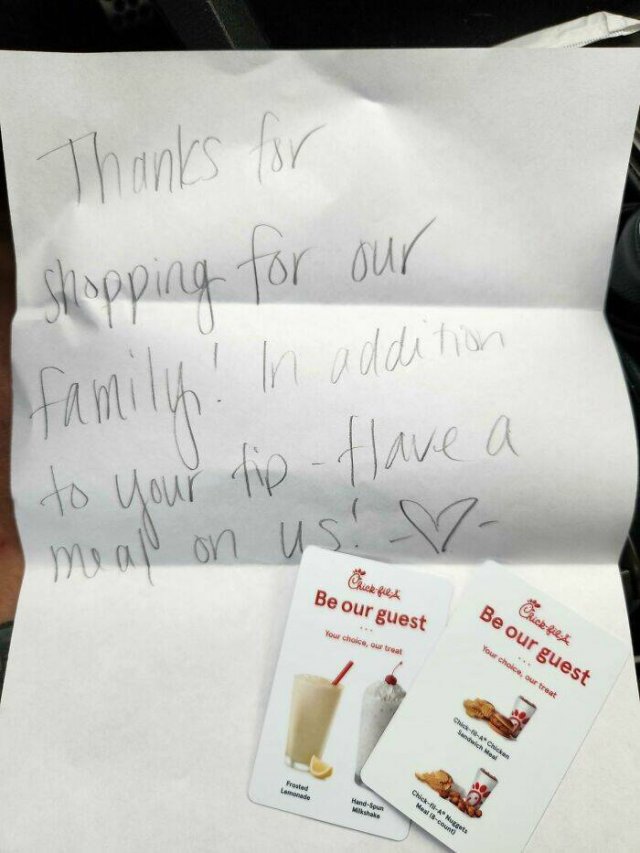 Thanks for
shopping for our
family! In addition
to your tip - Have a
meal on us! -♡-
Chick-fil-A
Be our guest
Your choice, our treat
Frosted
Lemonade
Hand-Spun
Milkshake
Chick-fil-A
Be our guest
Your choice, our treat
Chick-fil-A® Chicken
Sandwich Meal
Chick-fil-A® Nuggets
Meal (8-count)